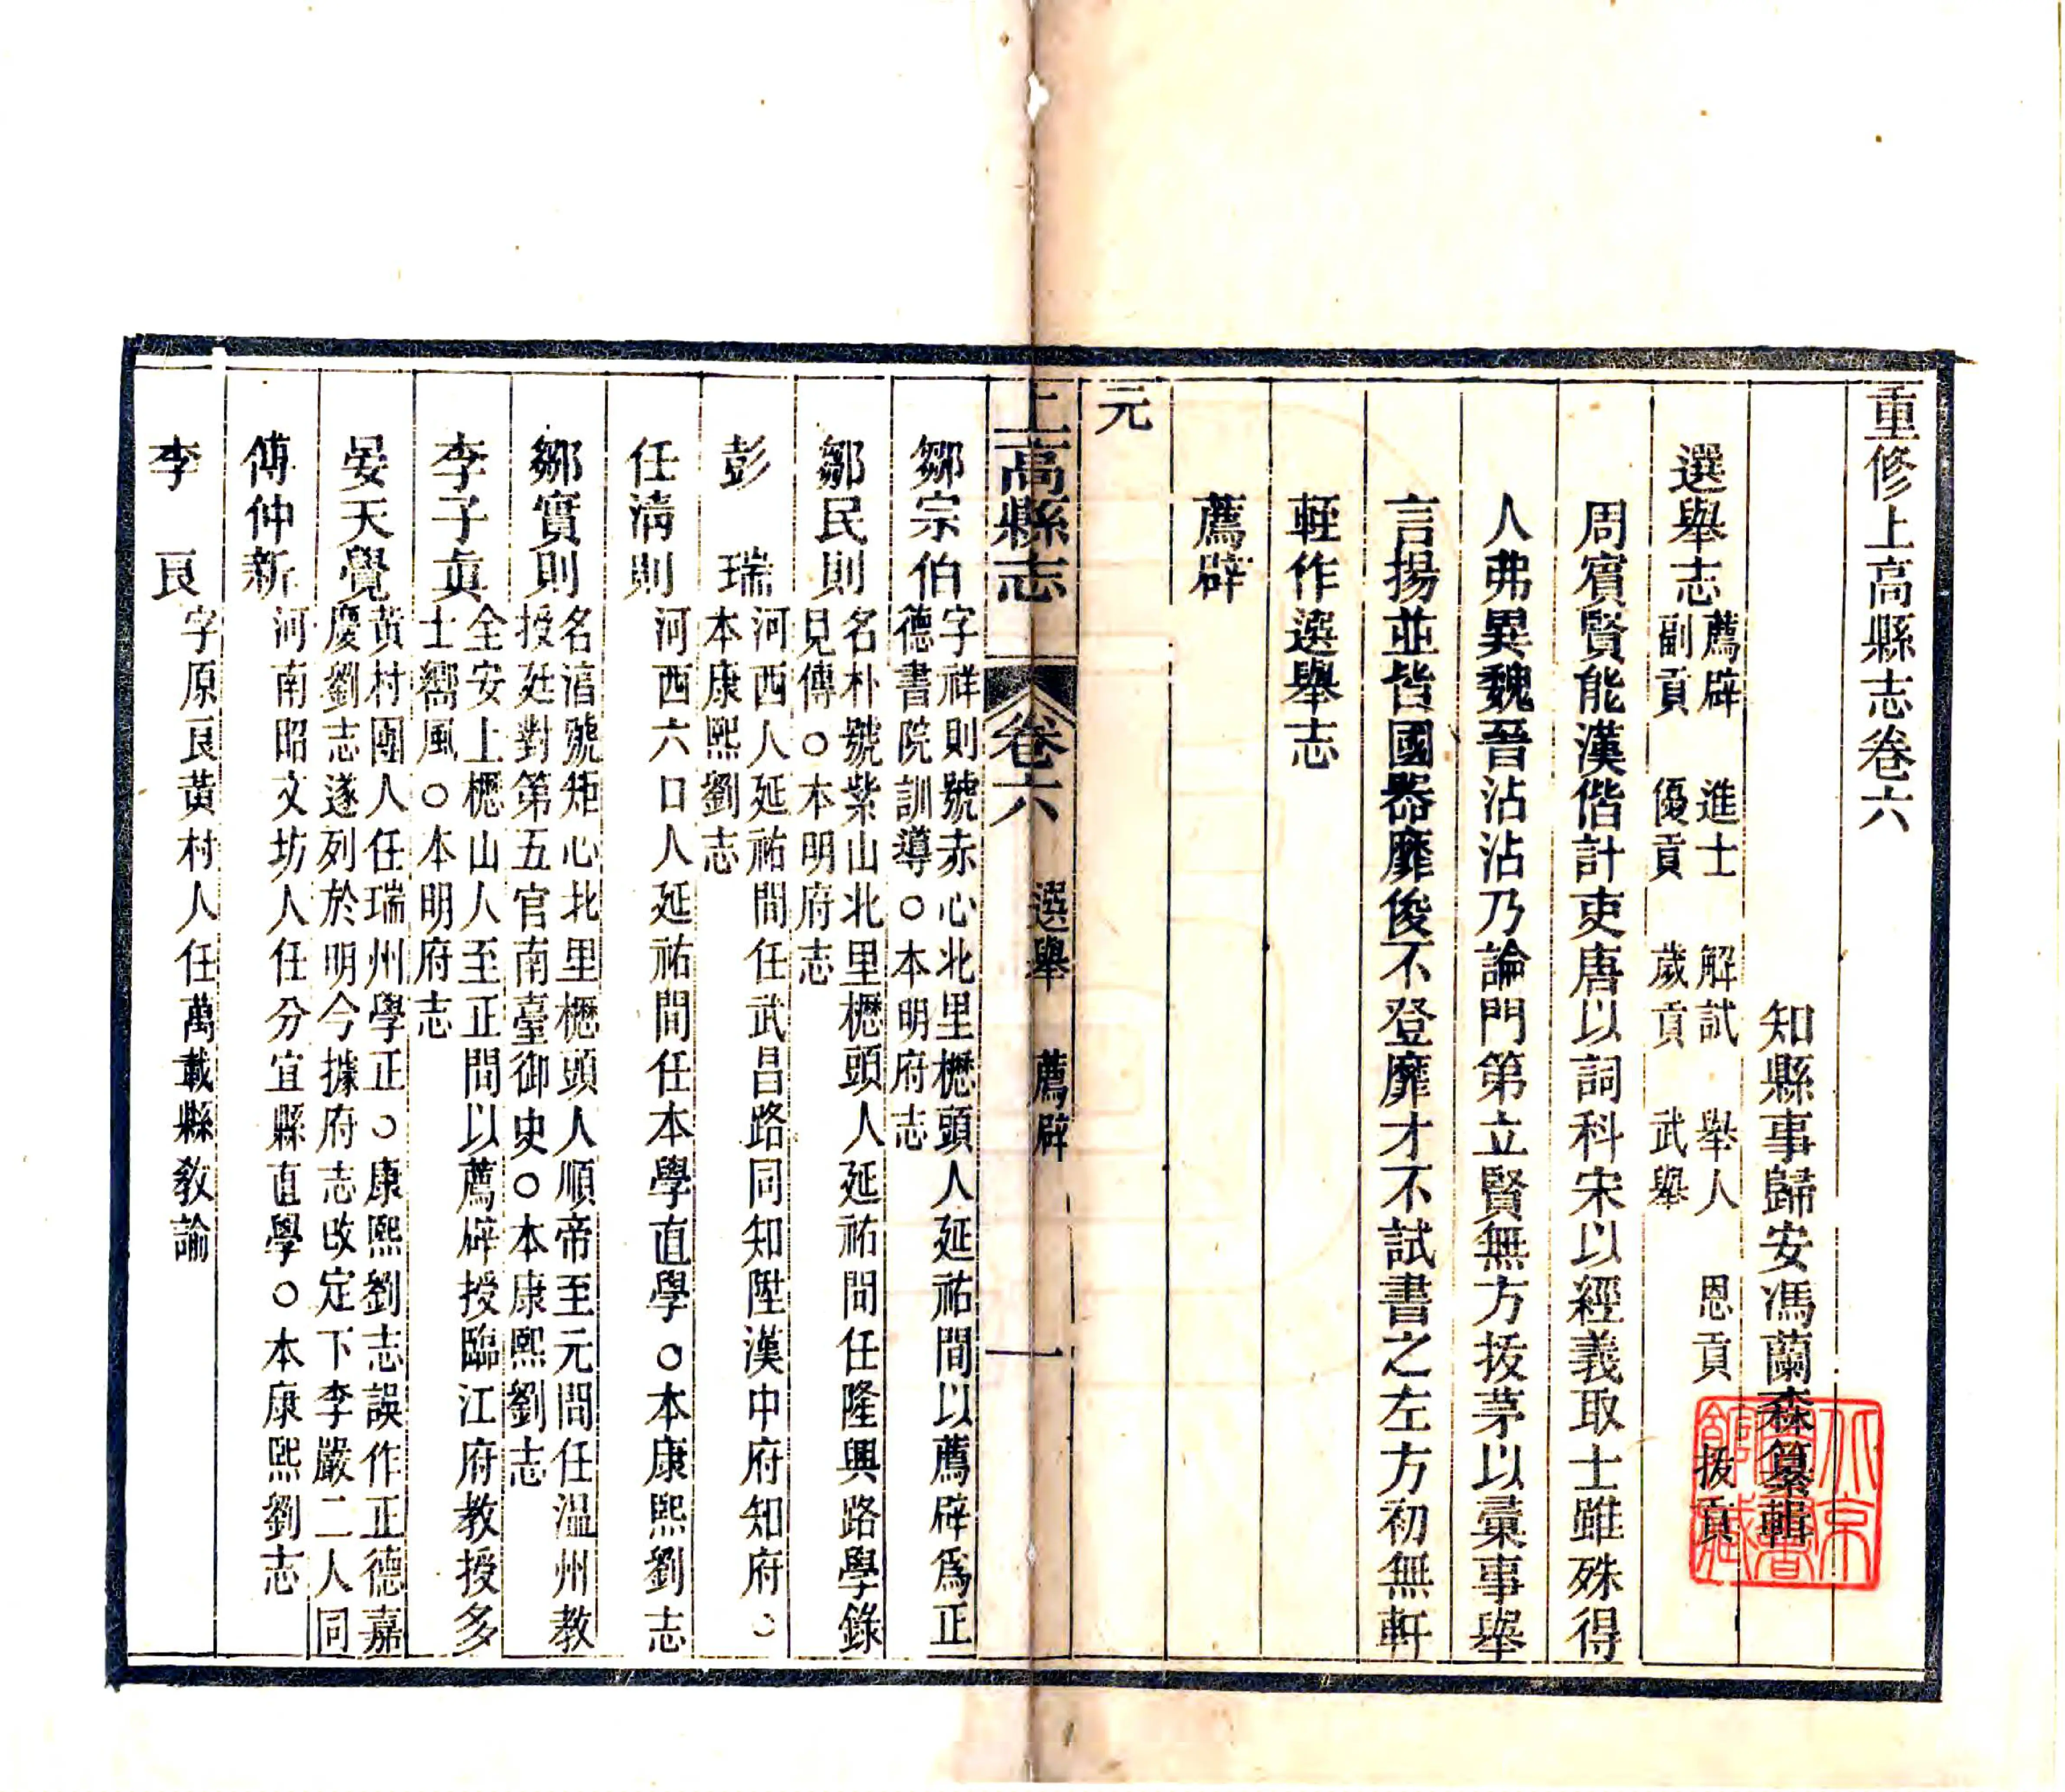 重修上高縣志卷六
知縣事歸安馮蘭森纂輯
選舉志
薦辟 進士 解試 舉人 恩貢 拔貢
副貢 優貢 歲貢 武舉
周賓賢能漢偕計吏唐以詞科宋以經義取士雖殊得
人弗異魏晉沾沾乃論門第立賢無方拔茅以彙事舉
言揚並皆國器靡俊不登靡才不試書之左方初無軒
輊作選舉志
薦辟
元
上高縣志 卷六 選舉 薦辟 一
鄒宗伯
字祥則號赤心北里樾頭人延祐間以薦辟爲正
德書院訓導○本明府志
鄒民則
名朴號紫山北里樾頭人延祐間任隆興路學錄
見傳○本明府志
彭 瑞
河西人延祐間任武昌路同知陞漢中府知府○
本康熙劉志
任清則
河西六口人延祐間任本學直學○本康熙劉志
鄒實則
名 號矩心北里樾頭人順帝至元間任溫州教
授廷對第五官南臺御史○本康熙劉志
李子貞
全安上樾山人至正間以薦辟授臨江府教授多
士嚮風○本明府志
晏天覺
黃村團人任瑞州學正○康熙劉志誤作正德嘉
慶劉志遂列於明今據府志改定下李嚴二人同
傅仲新
河南昭文坊人任分宜縣直學○本康熙劉志
李 良
字原良黃村人任萬載縣教諭